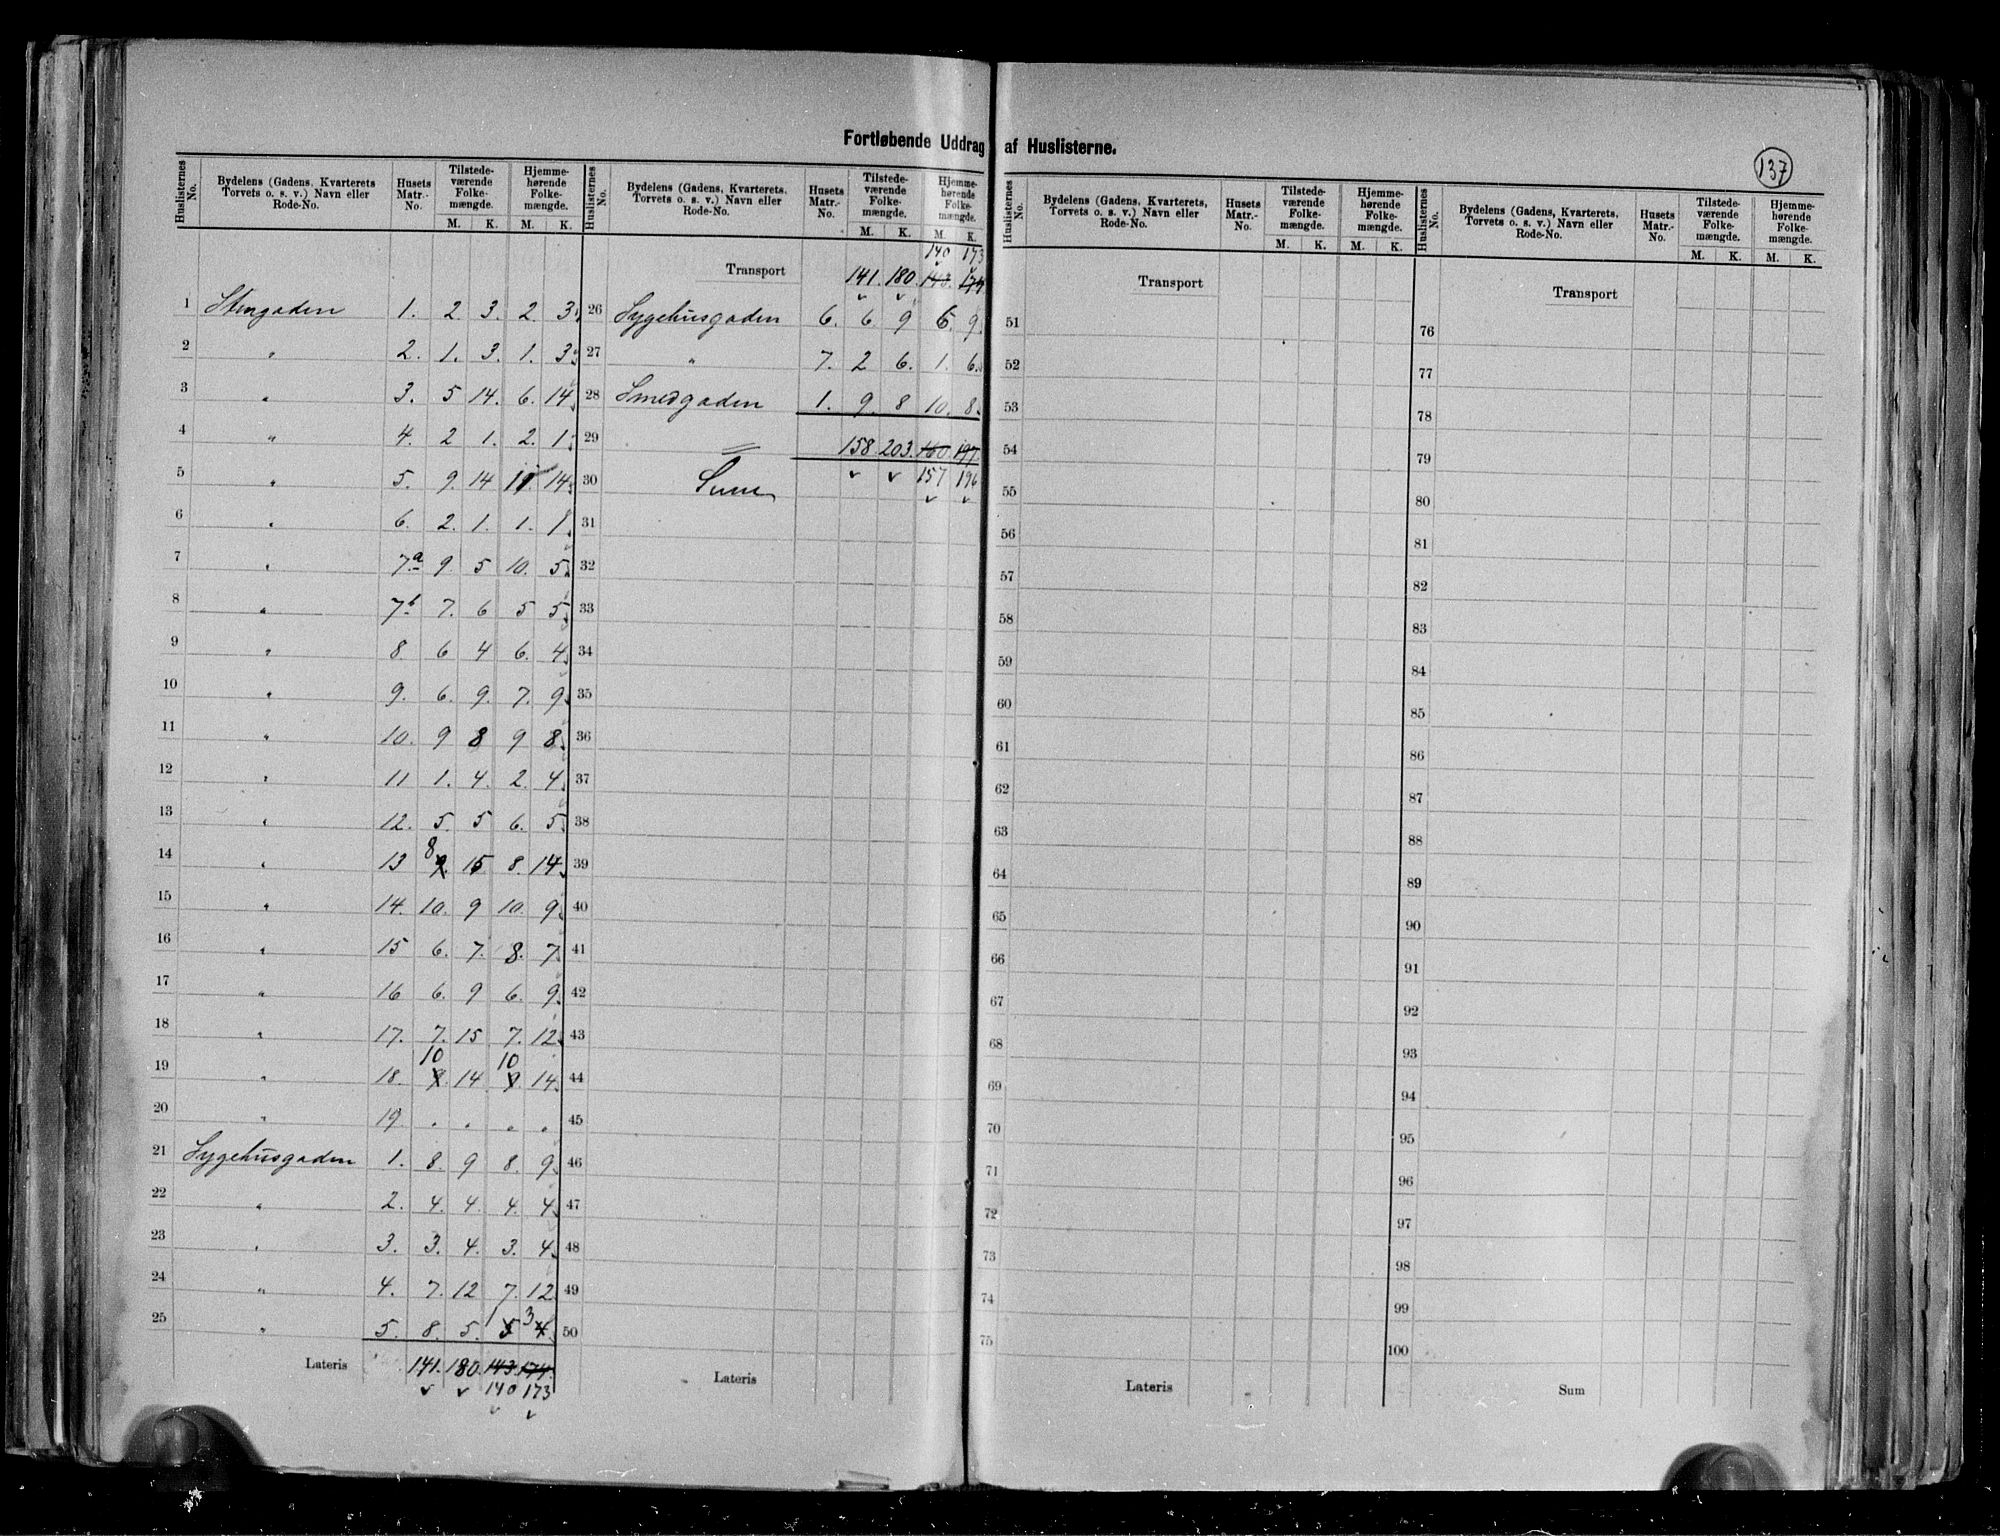 Fortløbende Uddrag af Huslisterne.
137
Huslisternes No. Bydelens (Gadens, Kvarterets Torvets o. s. v.) Navn eller Rode-No. Husets Matr.-No. Tilstedeværende Folkemængde. M. K. Hjemmehørende Folkemængde. M. K.
1 Stengaden 1. 2. 3. 2. 3.
2 " 2. 1. 3. 1. 3.
3 " 3. 5 14. 6. 14.
4 " 4. 2 1. 2. 1.
5 " 5. 9. 14 11 14.
6 " 6. 2. 1. 1. 1.
7 " 7.a 9. 5 10. 5.
8 " 7b 7. 6 5 5.
9 " 8. 6 4 6. 4.
10 " 9. 6. 9. 7. 9.
11 " 10. 9 8 9 8.
12 " 11 1. 4. 2. 4.
13 " 12. 5. 5 6. 5.
14 " 13 8 9. 15 8. 14.
15 " 14. 10. 9 10. 9.
16 " 15 6. 7. 8. 7.
17 " 16 6. 9 6. 9.
18 " 17. 7. 15 7. 12.
19 " 18. 10 9. 14 10 9. 14.
20 " 19. " " " "
21 Sygehusgaden 1. 8. 9 8. 9.
22 " 2. 4. 4. 4. 4.
23 " 3. 3. 4. 3. 4.
24 " 4. 7. 12 7. 12.
25 " 5. 8. 5. 1 5 3 4.
Lateris 141. 180. 143. 174.
140 173
Huslisternes No. Bydelens (Gadens, Kvarterets, Torvets o. s. v.) Navn eller Rode-No. Husets Matr.-No. Tilstedeværende Folkemængde. M. K. Hjemmehørende Folkemængde. M. K.
140 173
Transport 141. 180. 143. 174
26 Sygehusgaden 6. 6. 9 6. 9.
27 " 7. 2 6. 1. 6.
28 Smedgaden 1. 9. 8 10. 8.
29 158. 203. 160. 197.
30 Sum 157 196
31
32
33
34
35
36
37
38
39
40
41
42
43
44
45
46
47
48
49
50
Lateris
Huslisternes No. Bydelens (Gadens, Kvarterets, Torvets o. s. v.) Navn eller Rode-No. Husets Matr.-No. Tilstedeværende Folkemængde. M. K. Hjemmehørende Folkemængde. M. K.
Transport
51
52
53
54
55
56
57
58
59
60
61
62
63
64
65
66
67
68
69
70
71
72
73
74
75
Lateris
Huslisternes No. Bydelens (Gadens, Kvarterets, Torvets o. s. v.) Navn eller Rode-No. Husets Matr.-No. Tilstedeværende Folkemængde. M. K. Hjemmehørende Folkemængde. M. K.
Transport
76
77
78
79
80
81
82
83
84
85
86
87
88
89
90
91
92
93
94
95
96
97
98
99
100
Sum